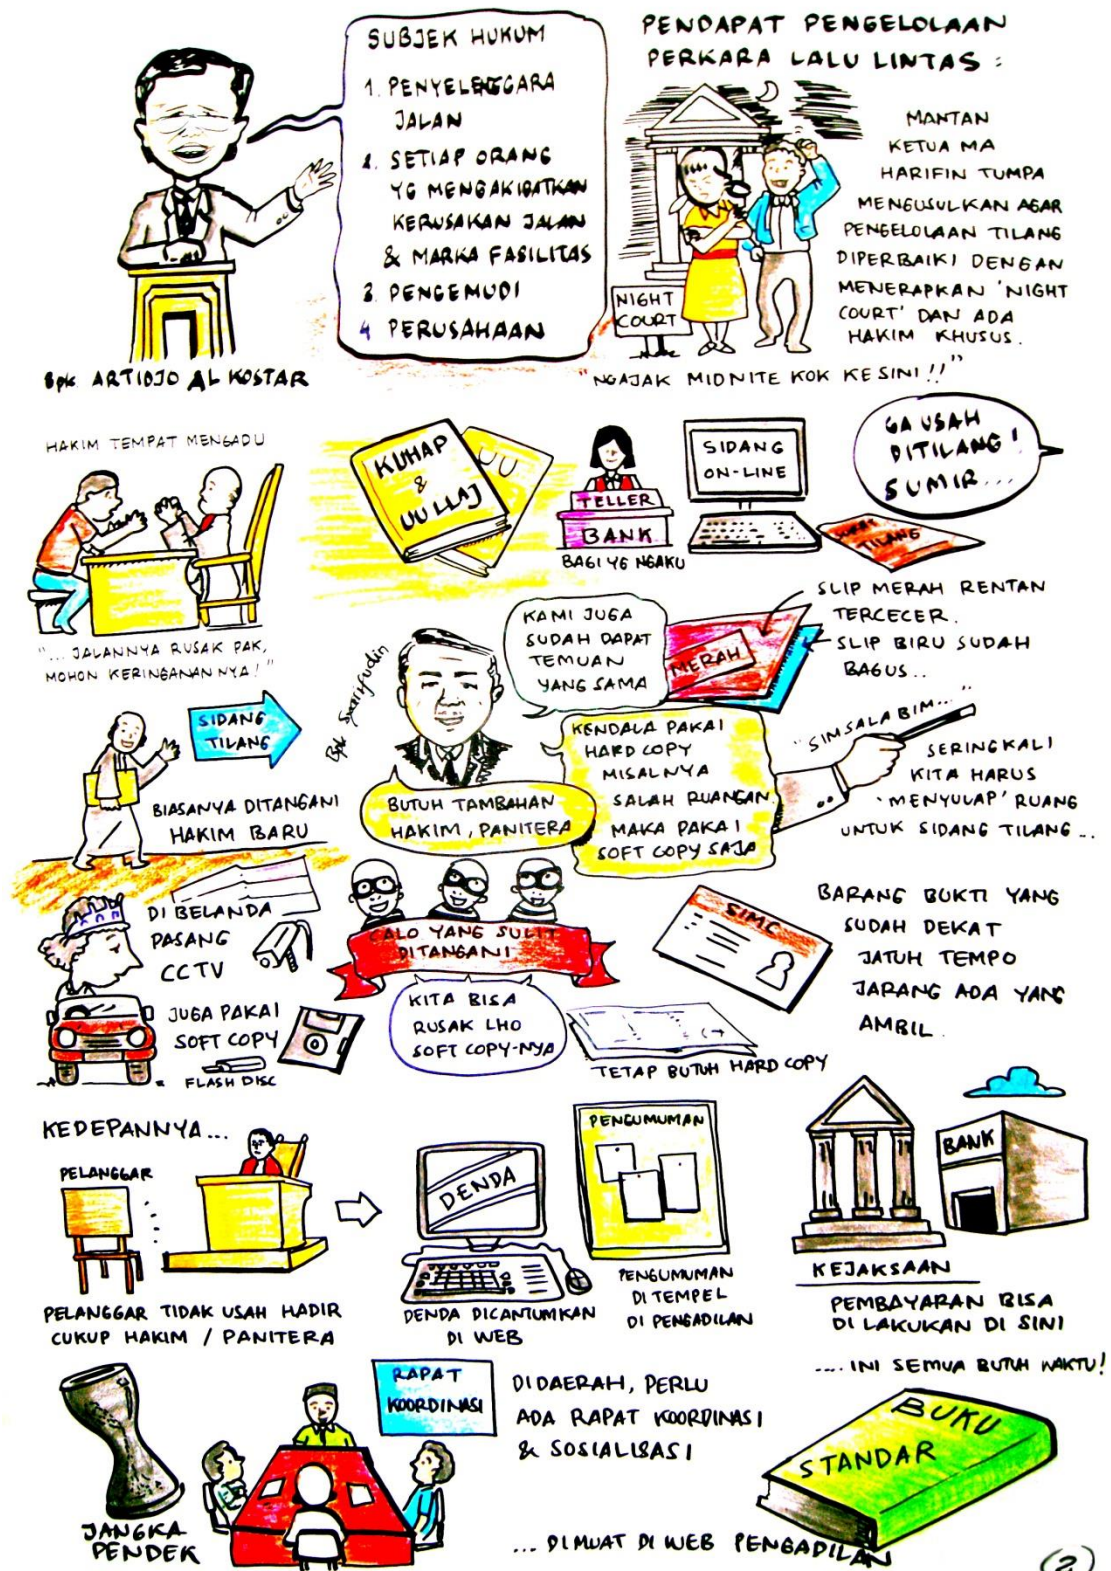 SUBJEK HUKUM
1. PENYELENGGARA
JALAN
2. SETIAP ORANG
YG MENGAKIBATKAN
KERUSAKAN JALAN
& MARKA FASILITAS
3. PENGEMUDI
4 PERUSAHAAN
Bpk ARTIDJO AL KOSTAR
PENDAPAT PENGELOLAAN
PERKARA LALU LINTAS :
MANTAN
KETUA MA
HARIFIN TUMPA
MENGUSULKAN AGAR
PENGELOLAAN TILANG
DIPERBAIKI DENGAN
MENERAPKAN 'NIGHT
COURT' DAN ADA
HAKIM KHUSUS.
NIGHT
COURT
"NGAJAK MIDNITE KOK KESINI!!"
HAKIM TEMPAT MENGADU
"... JALANNYA RUSAK PAK,
MOHON KERINGANANNYA!"
KUHAP
&
UU LLAJ
UU
TELLER
BANK
BAGI YG NGAKU
SIDANG
ON-LINE
GA USAH
DITILANG!
SUMIR...
SURAT
TILANG
KAMI JUGA
SUDAH DAPAT
TEMUAN
YANG SAMA
MERAH
SLIP MERAH RENTAN
TERCECER.
SLIP BIRU SUDAH
BAGUS..
Bpk Syarifudin
SIDANG
TILANG
BIASANYA DITANGANI
HAKIM BARU
BUTUH TAMBAHAN
HAKIM, PANITERA
KENDALA PAKAI
HARD COPY
MISALNYA
SALAH RUANGAN.
MAKA PAKAI
SOFT COPY SAJA
"SIMSALA BIM..."
SERINGKALI
KITA HARUS
'MENYULAP' RUANG
UNTUK SIDANG TILANG...
DI BELANDA
PASANG
CCTV
JUGA PAKAI
SOFT COPY
FLASH DISC
CALO YANG SULIT
DITANGANI
KITA BISA
RUSAK LHO
SOFT COPY-NYA
TETAP BUTUH HARD COPY
SIMC
BARANG BUKTI YANG
SUDAH DEKAT
JATUH TEMPO
JARANG ADA YANG
AMBIL.
KEDEPANNYA...
PELANGGAR
PELANGGAR TIDAK USAH HADIR
CUKUP HAKIM / PANITERA
DENDA
DENDA DICANTUMKAN
DI WEB
PENGUMUMAN
PENGUMUMAN
DI TEMPEL
DI PENGADILAN
BANK
KEJAKSAAN
PEMBAYARAN BISA
DI LAKUKAN DI SINI
.... INI SEMUA BUTUH WAKTU!
JANGKA
PENDEK
RAPAT
KOORDINASI
DIDAERAH, PERLU
ADA RAPAT KOORDINASI
& SOSIALISASI
BUKU
STANDAR
... DIMUAT DI WEB PENGADILAN
2